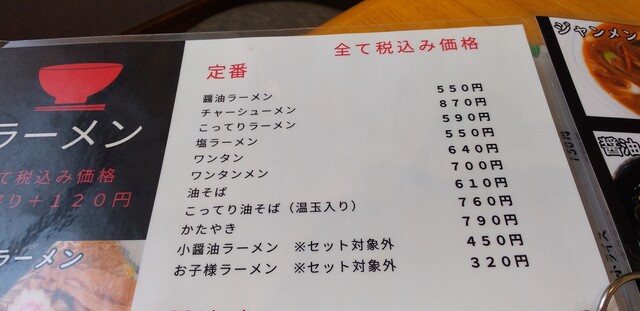 全て税込み価格
定番
醤油ラーメン 550円
チャーシューメン 870円
こってりラーメン 590円
塩ラーメン 550円
ワンタン 640円
ワンタンメン 700円
油そば 610円
こってり油そば（温玉入り） 760円
かたやき 790円
小醤油ラーメン ※セット対象外 450円
お子様ラーメン ※セット対象外 320円
ラーメン
て税込み価格
り＋１２０円
ラーメン
ジャンメン
醤油